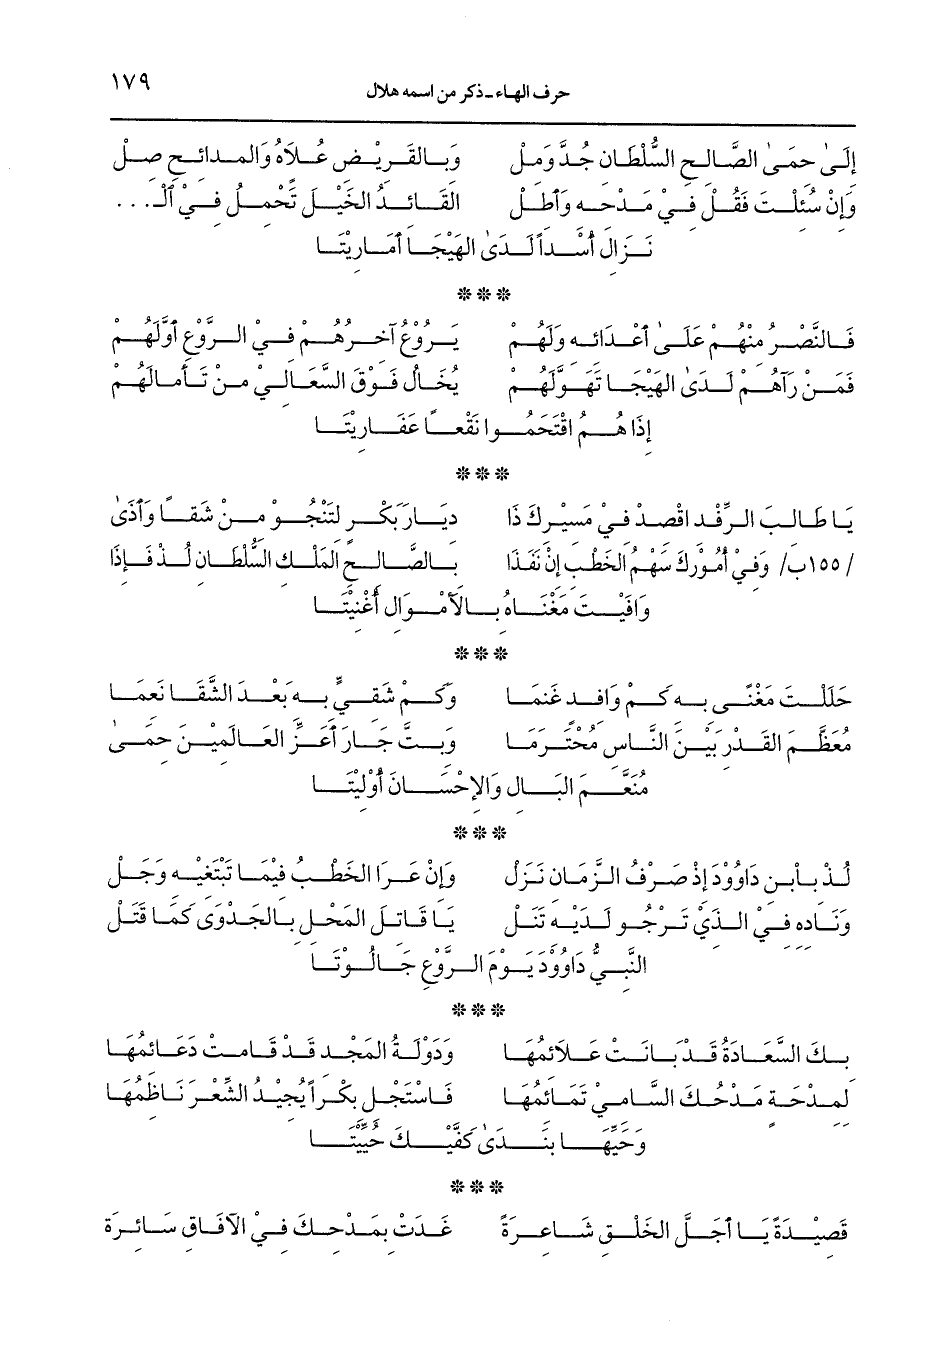 حرف الهاء ـ ذكر من اسمه هلال ١٧٩
إلَىٰ حِمَىٰ الصَّالحِ السُّلطَان جُدَّ وَمِلْ وَبالقَرِيْضِ عُلاَهُ وَالمدائحِ صِلْ
وَإنْ سُئلتَ فَقُلْ في مَدْحِه وَأَطِلْ القَائدُ الخَيْلَ تَحْمِلُ فيْ الْـ . . .
نِزَالِ أُسْداً لَدَىٰ الهَيْجَا أَمَارِيْتَا
***
فَالنَّصْرُ مِنْهُمْ عَلَىٰ أعْدَائه وَلَهُمْ يَرُوْعُ آخِرُهُمْ فيْ الرَّوْعِ أوَّلَهُمْ
فَمَنْ رَآهُمْ لَدَىٰ الهَيْجَا تَهَوَّلَهُمْ يُخَالُ فَوْقَ السَّعَاليْ مِنْ تَأَمَّالَهُمْ
إذَا هُمُ اقْتَحَمُوا نَقْعاً عَفَارِيْتَا
***
يَا طَالبَ الرِّفدِ اقْصدْ فيْ مَسِيْرِكَ ذَا دِيَارَ بَكْرٍ لتَنْجُوْ مِنْ شَقاً وَأَذَىٰ
/ ١٥٥ب/ وَفيْ أمُوْرِكَ سَهْمُ الخَطْبِ إنْ نَفَذَا بالصَّالحِ المَلكِ السُّلطَانِ لُذْ فَإذَا
وَافَيْتَ مَغْنَاهُ بالأَمْوَالِ أُغْنِيْتَا
***
حَلَلتَ مَغْنًى بهِ كَمْ وَافدٍ غَنمَا وَكَمْ شَقيٍّ بهِ بَعْدَ الشَّقَا نَعِمَا
مُعَظَّمَ القَدْرِ بَيْنَ النَّاسِ مُحْتَرَمَا وَبتَّ جَارَ أعَزِّ العَالَميْنَ حِمَىً
مُنَعَّمَ البَالِ وَالإحْسَانَ أُوْليْتَا
***
لُذْ بابنِ دَاوُوْدَ إذْ صَرْفُ الزَّمَانِ نَزَلْ وَإنْ عَرَا الخَطْبُ فيْمَا تَبْتَغيْه وَجَلْ
وَنَادِه في الذيْ تَرْجُو لَدَيْه تَنَلْ يَا قَاتلَ المَحْلِ بالجَدْوَى كَمَا قَتَلْ
النَّبيُّ دَاوُوْدُ يَوْمَ الرَّوْعِ جَالُوْتَا
***
بكَ السَّعَادَةُ قَدْ بَانَتْ عَلاَئمُهَا وَدَوْلَةُ المَجْدِ قَدْ قَامَتْ دَعَائمُهَا
لمدْحَةٍ مَدْحُكَ السَّامي تَمَائمُهَا فَاسْتَجْلِ بكْراً يُجيْدُ الشِّعْرَ نَاظمُهَا
وَحَيِّهَا بنَدَىٰ كَفَّيْكَ حُيِّيْتَا
***
قَصِيْدَةً يَا أَجَلَّ الخَلْقِ شَاعِرَةً غَدَتْ بمَدْحِكَ فيْ الآفَاقِ سَائرَة